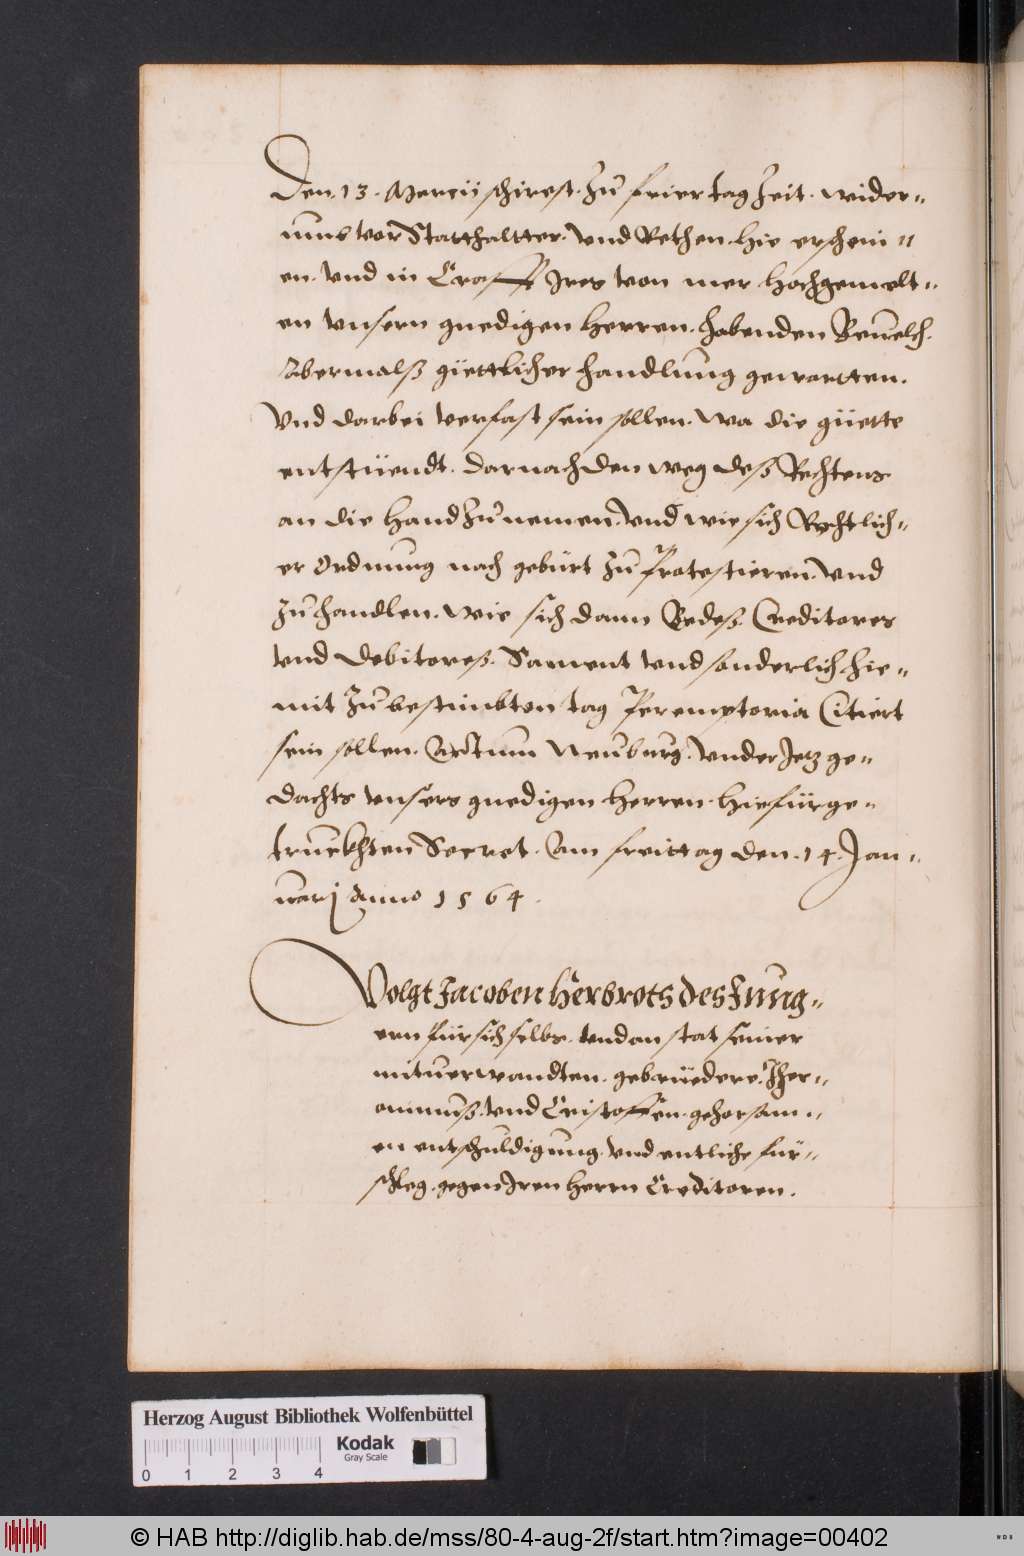 Den 13. Mercii schirest. Zu freier tag Zeit. wider-
umb vor Statthaltter. vnd Rethen. hie erschein-
en. vnd in Crafft Ires von mer hochgemelt-
en vnsern gnedigen herren. habenden Beuelch.
Abermalß güettlicher handlung gewartten.
Vnd darbei verfast sein sollen. wa die güette
entstüendt. darnach den weg deß Rechtens
an die hand Zu nemen. vnd wie sich Rechtlich-
er Ordnung nach gebürt Zu Protestieren. vnd
Zu handlen. wie sich dann Bedeß Creditores
vnd Debitoreß. Sament vnd sonderlich. hie-
mit Zu bestimbten tag Peremptoria Citiert
sein sollen. Actum Neuburg. vnder Jetz ge-
dachts vnsers gnedigen herren. hiefür ge-
truckhten Secret. Am freittag den. 14. Jan-
uarj Anno 1564.
Volgt Jacoben Herbrots des Jung-
ern für sich selbs. vnd an stat seiner
mituerwandten. gebrüedere. Iher-
onimuß. vnd Cristoffen. gehorsam-
en entschuldigung. vnd entliche für-
schleg. gegen Iren herrn Creditoren.
Herzog August Bibliothek Wolfenbüttel
Kodak
Gray Scale
0 1 2 3 4
© HAB http://diglib.hab.de/mss/80-4-aug-2f/start.htm?image=00402